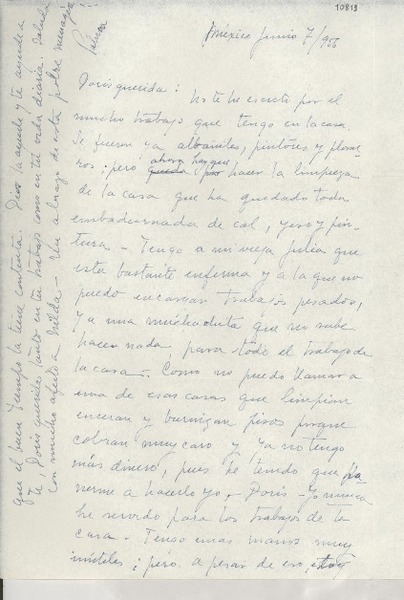 10813
México Junio 7/956
Doris querida: No te he escrito por el
mucho trabajo que tengo en la casa.
Se fueron ya albañiles, pintores y plome-
ros; pero ahora hay que hacer la limpieza
de la casa que ha quedado toda
embadurnada de cal, yeso y pin-
tura - Tengo a mi vieja Julia que
esta bastante enferma y a la que no
puedo encargar trabajos pesados,
y a una muchachita que no sabe
hacer nada, para todo el trabajo de
la casa -. Como no puedo llamar a
una de esas casas que limpian
enceran y barnizan pisos porque
cobran muy caro y ya no tengo
más dinero, pues he tenido que po-
nerme a hacerlo yo. Doris - Yo nunca
he servido para los trabajos de la
casa - Tengo unas manos muy
inútiles; pero a pesar de eso, estoy
que el buen tiempo la tiene contenta. Dios la ayude y te ayude a
ti Doris querida tanto en tu trabajo como en tu vida diaria. Saluda
con mucho afecto a Hilda - Un abrazo de esta pobre
Palma